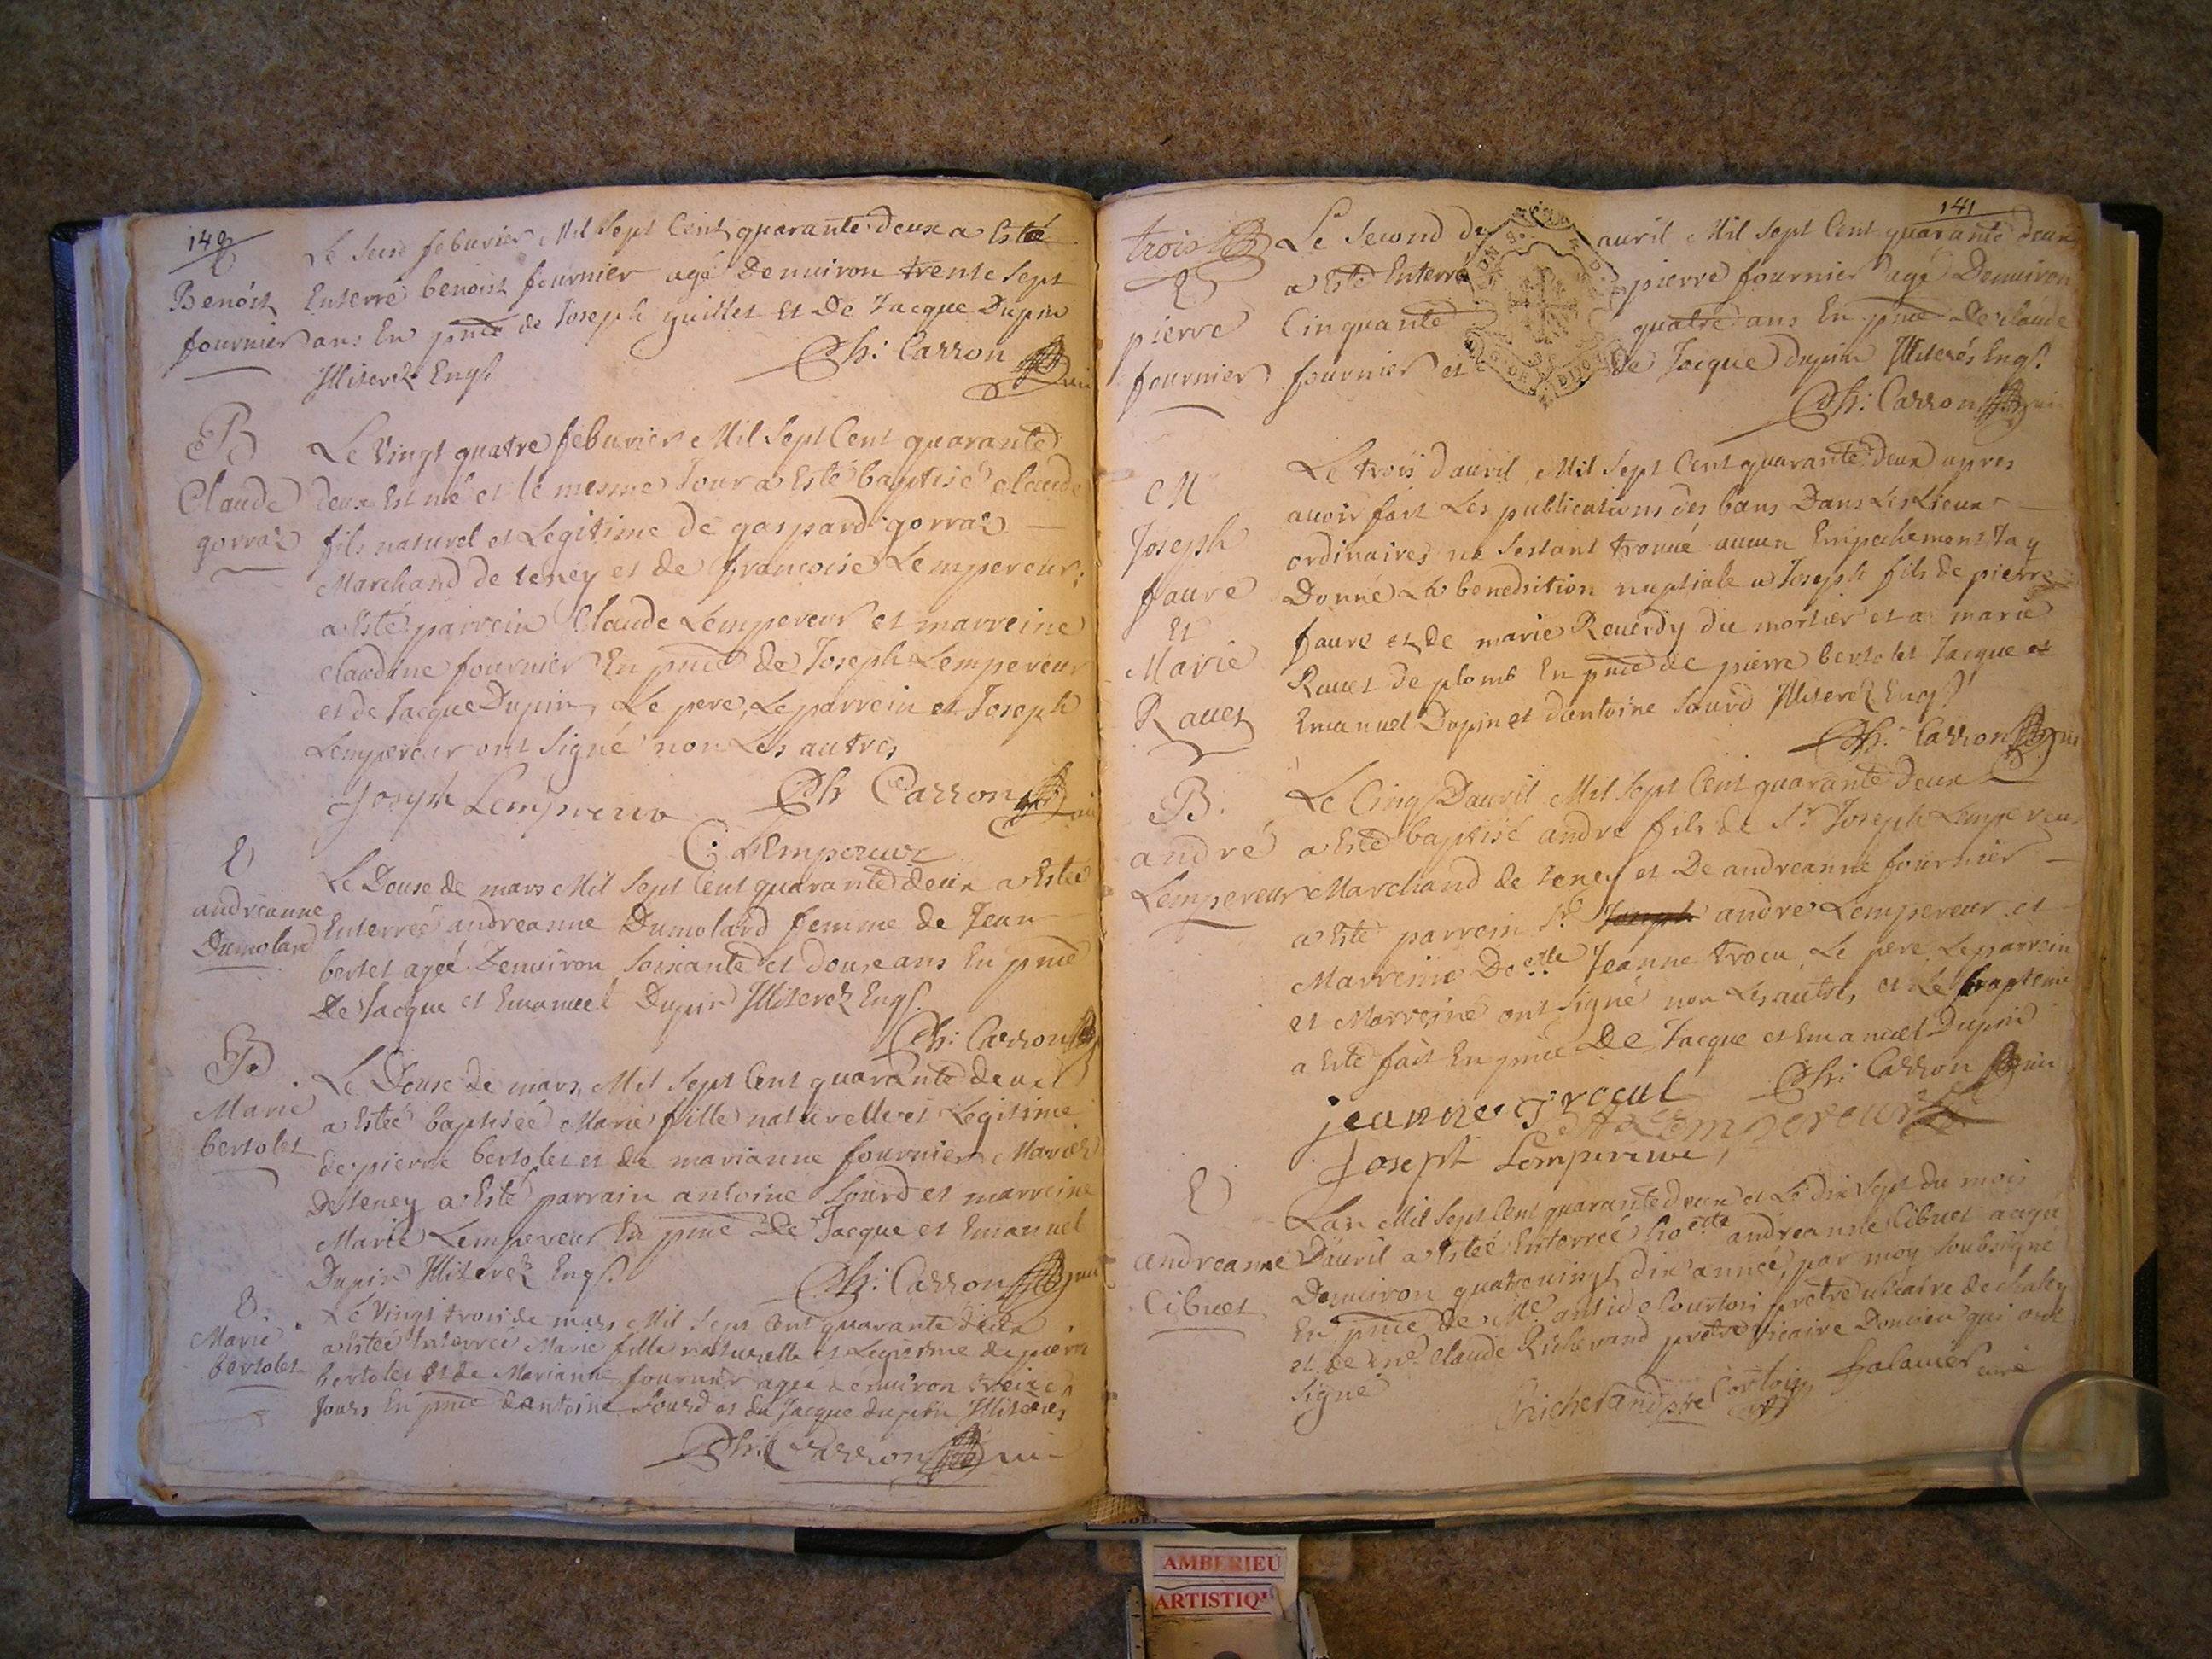 140
E
Benoit
fournier
Le seise feburier Mil Sept Cent quarante deux a Esté
Enterré benoist fournier agé Denuiron trente Sept
ans En pnce de Joseph guillet et De Jacque Dupin
Illiterez Enqs
Ph: Carron
B
Claude
gorraz
Le Vingt quatre feburier Mil Sept Cent quarante
deux Est né et le mesme Jour a Esté baptisé claude
fils naturel et Legitime de gaspard gorraz
Marchand de teney et de francoise Lempereur;
a Esté parrein Claude Lempereur et marreine
claudine fournier En pnce de Joseph Lempereur
et de Jacque Dupin, Le pere, Le parrein et Joseph
Lempereur ont Signé non Les autres
Joseph Lempereur
Ph Carron
C; LEmpereur
E
andreanne
Dumolard
Le Douse de mars Mil Sept Cent quarante deux a Estée
Enterreé andreanne Dumolard femme de Jean
bertet ageé Denuiron Soixante et douse ans En pnce
De Jacque et Emanuel Dupin Illiterez Enqs
Ph: Carron
B
Marie
bertolet
Le Douse de mars, Mil Sept Cent quarante deux
a Esteé baptiseé Marie fille naturelle et Legitime
de pierre bertolet et de marianne fournier Mariez
De teney a Esté parrain antoine Sourd et marreine
Marie Lempereur En pnce De Jacque et Emanuel
Dupin Illiterez Enqs.
Ph: Carron
E
Marie
bertolet
Le Vingt trois de mars Mil Sept Cent quarante deux
a esteé Enterreé Marie fille naturelle et Legitime de pierre
bertolet et de Marianne fournier agee denuiron treize
Jours En pnce d'antoine Sourd et de Jacque dupin Illiterés
Ph: Carron
141
trois
E
pierre
fournier
Le Second de auril Mil Sept Cent quarante deux
a Esté Enterré pierre fournier agé Denuiron
Cinquante quatre ans En pnce De claude
fournier et de Jacque dupin Illiterés Enqs.
Ph: Carron
M
Joseph
faure
Et
Marie
Rauet
Le trois d'auril Mil Sept Cent quarante deux apres
auoir fait Les publications des bans Dans Les Lieux
ordinaires ne Sestant trouué aucun Empechement J'ay
Donné La benedition nuptiale a Joseph fils de pierre
faure et de marie Reuerdy du mortier et a marie
Rauet de plomb En pnce de pierre bertolet Jacque et
Emanuel Dupin et d'antoine Sourd Illiterez Enqs
Ph: Carron
B.
andré
Lempereur
Le Cinq D'auril Mil Sept Cent quarante Deux
a Esté baptisé andre fils de Sr Joseph Lempereur
Marchand de teney et De andreanne fournier
a Esté parrein Sr Joseph andre Lempereur et
Marreine Doelle Jeanne trocu Le pere Le parrein
et Marreine ont Signé non Les autres et Le bapteme
a Esté fait En pnce De Jacque et Emanuel Dupin
Ph: Carron
jeanne trocul
Lempereur
Joseph Lempereur
E
andreanne
Cibuet
Lan Mil Sept Cent quarante deux et Le dix Sept du mois
D'auril a Esteé Enterreé andreanne Cibuet aageé
Denuiron quatreuingt dix anneé, par moy Soubsigné
En pnce de Mre antide Courtois prêtre uicaire de chaley
et de mre Claude Richerand prêtre vicaire Doncieu qui ont
Signé
Richerand ptre
Cortois
curé
AMBERIEU
ARTISTIQ